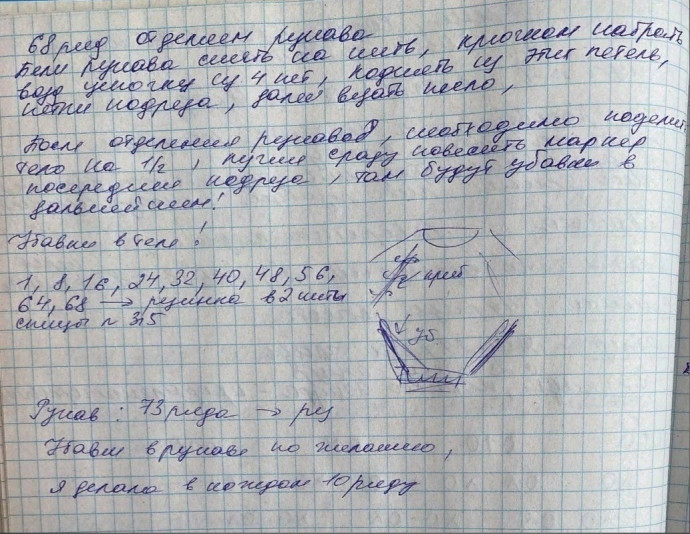 68 ряд отделяем рукава
петли рукава снять на нить, крючком набрать
возд цепочку из 4 пет, поднять из этих петель,
петли подреза, далее вязать тело,
После отделения рукавов, необходимо поделить
тело на 1/2, лучше сразу повесить маркер
посередине подреза, там будут убавки в
дальнейшем!
Убавки в теле!
1, 8, 16, 24, 32, 40, 48, 56,
64, 68 → резинка в 2 нити
спицы № 3,5
приб
уб.
Рукав: 73 ряда → рез
Убавки в рукаве по желанию,
я делала в каждом 10 ряду